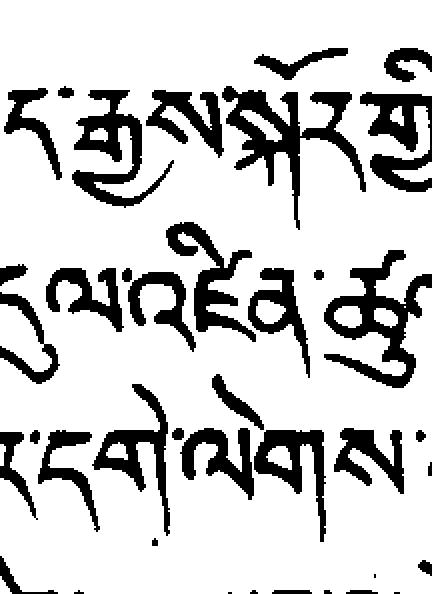 ད་རྒྱས་སྐོར་གྱི
དུ་ལ་འཛིན་ཚུ
ར་དགེ་ལེགས་